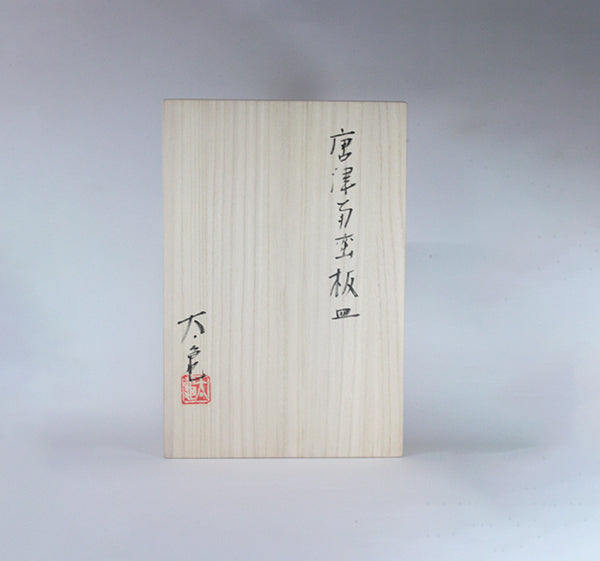 唐津南蛮板皿
太亀